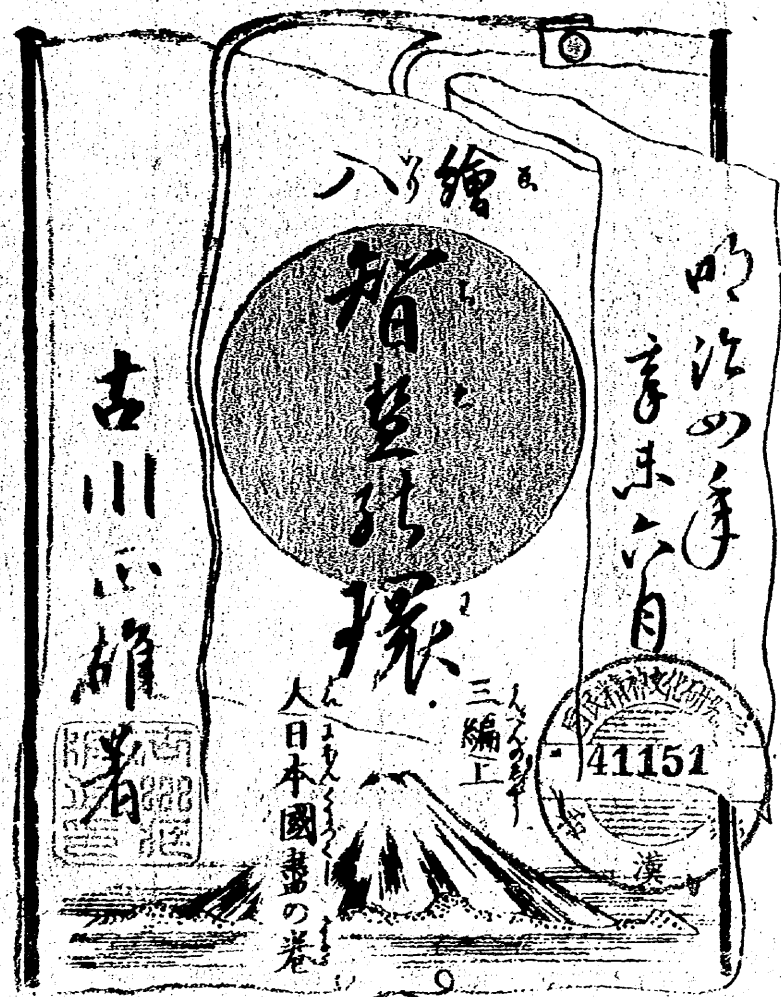 明治四年
辛未六月
繪入
智慧能環
三編上
大日本國盡の巻
古川正雄著
國民精神文化研究
41151